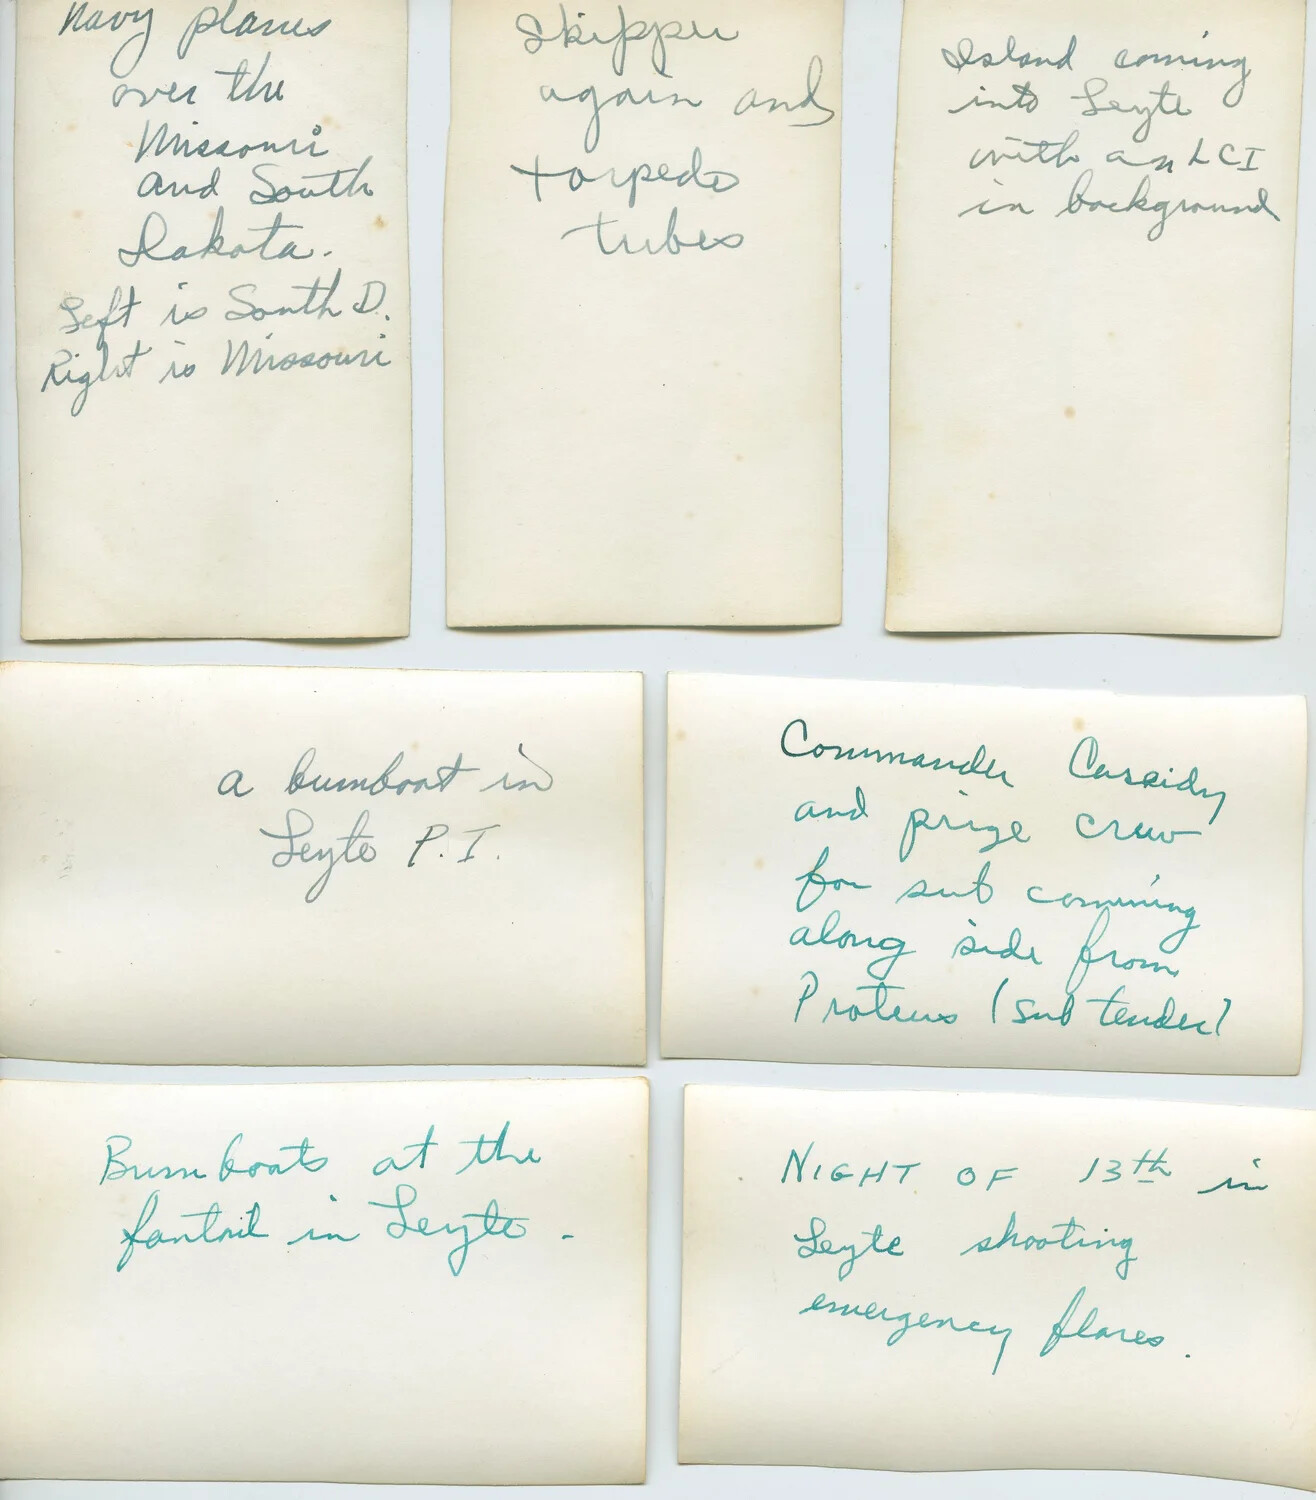 Navy planes
over the
Missouri
and South
Dakota.
Left is South D.
Right is Missouri
Skipper
again and
torpedo
tubes
Island coming
into Leyte
with an LCI
in background
a bumboat in
Leyte P.I.
Commander Cassidy
and prize crew
for sub comming
along side from
Proteus (sub tender)
Bumboats at the
fantail in Leyte.
NIGHT OF 13th in
Leyte shooting
emergency flares.